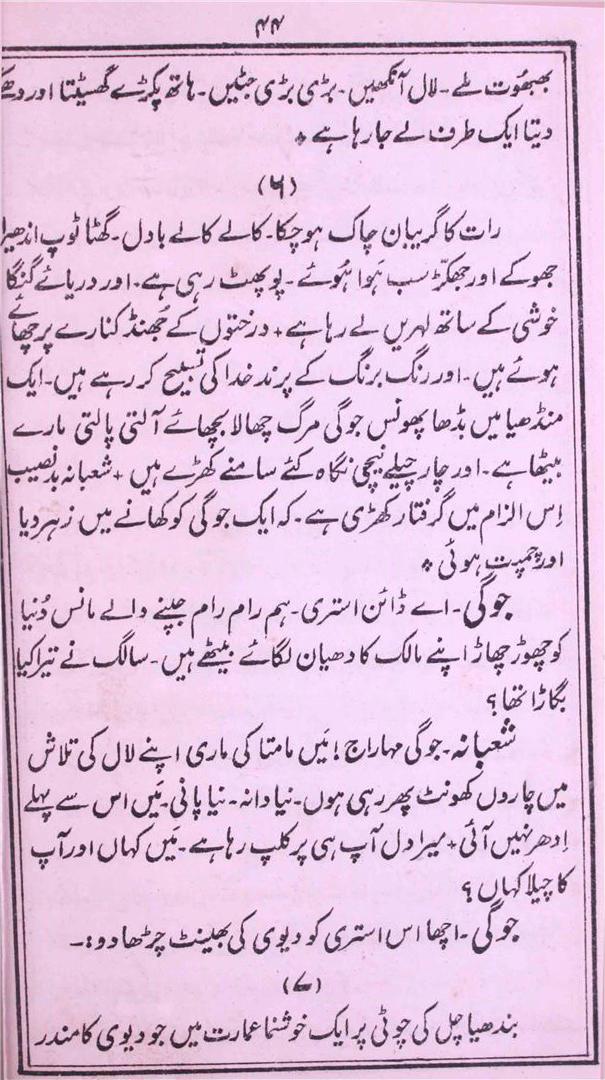 ۴۴
بھبھُوت ملے۔ لال آنکھیں۔ بڑی بڑی جٹیں۔ ہاتھ پکڑے گھسیٹتا اور دھکے
دیتا ایک طرف لے جا رہا ہے ٭
(۶)
رات کا گریبان چاک ہو چکا۔ کالے کالے بادل۔ گھٹا ٹوپ اندھیرا
جھوکے اور جھکڑ سب ہَوا ہُوئے۔ پو پھٹ رہی ہے۔ اور دریائے گنگا
خوشی کے ساتھ لہریں لے رہا ہے ٭ درختوں کے جُھنڈ کنارے پر چھائے
ہوئے ہیں۔ اور رنگ برنگ کے پرند خدا کی تسبیح کر رہے ہیں۔ ایک
منڈھیا میں بڈھا پھونس جوگی مرگ چھالا بچھائے آلتی پالتی مارے
بیٹھا ہے۔ اور چار چیلے نیچی نگاہ کئے سامنے کھڑے ہیں ٭ شعبانہ بدنصیب
اِس الزام میں گرفتار کھڑی ہے۔ کہ ایک جوگی کو کھانے میں زہر دیا
اور چمپت ہوئی ٭
جوگی۔ اے ڈائن استری۔ ہم رام رام جپنے والے مانس دُنیا
کو چھوڑ چھاڑ اپنے مالک کا دھیان لگائے بیٹھے ہیں۔ سالگ نے تیرا کیا
بگاڑا تھا؟
شعبانہ۔ جوگی مہاراج! مَیں مامتا کی ماری اپنے لال کی تلاش
میں چاروں کھونٹ پھر رہی ہوں۔ نیا دانہ۔ نیا پانی۔ مَیں اس سے پہلے
اِدھر نہیں آئی ٭ میرا دل آپ ہی پر کلپ رہا ہے۔ مَیں کہاں اور آپ
کا چیلا کہاں؟
جوگی۔ اچھا اس استری کو دیوی کی بھینٹ چڑھا دو :۔
(۷)
بندھیاچل کی چوٹی پر ایک خوشنما عمارت میں جو دیوی کا مندر